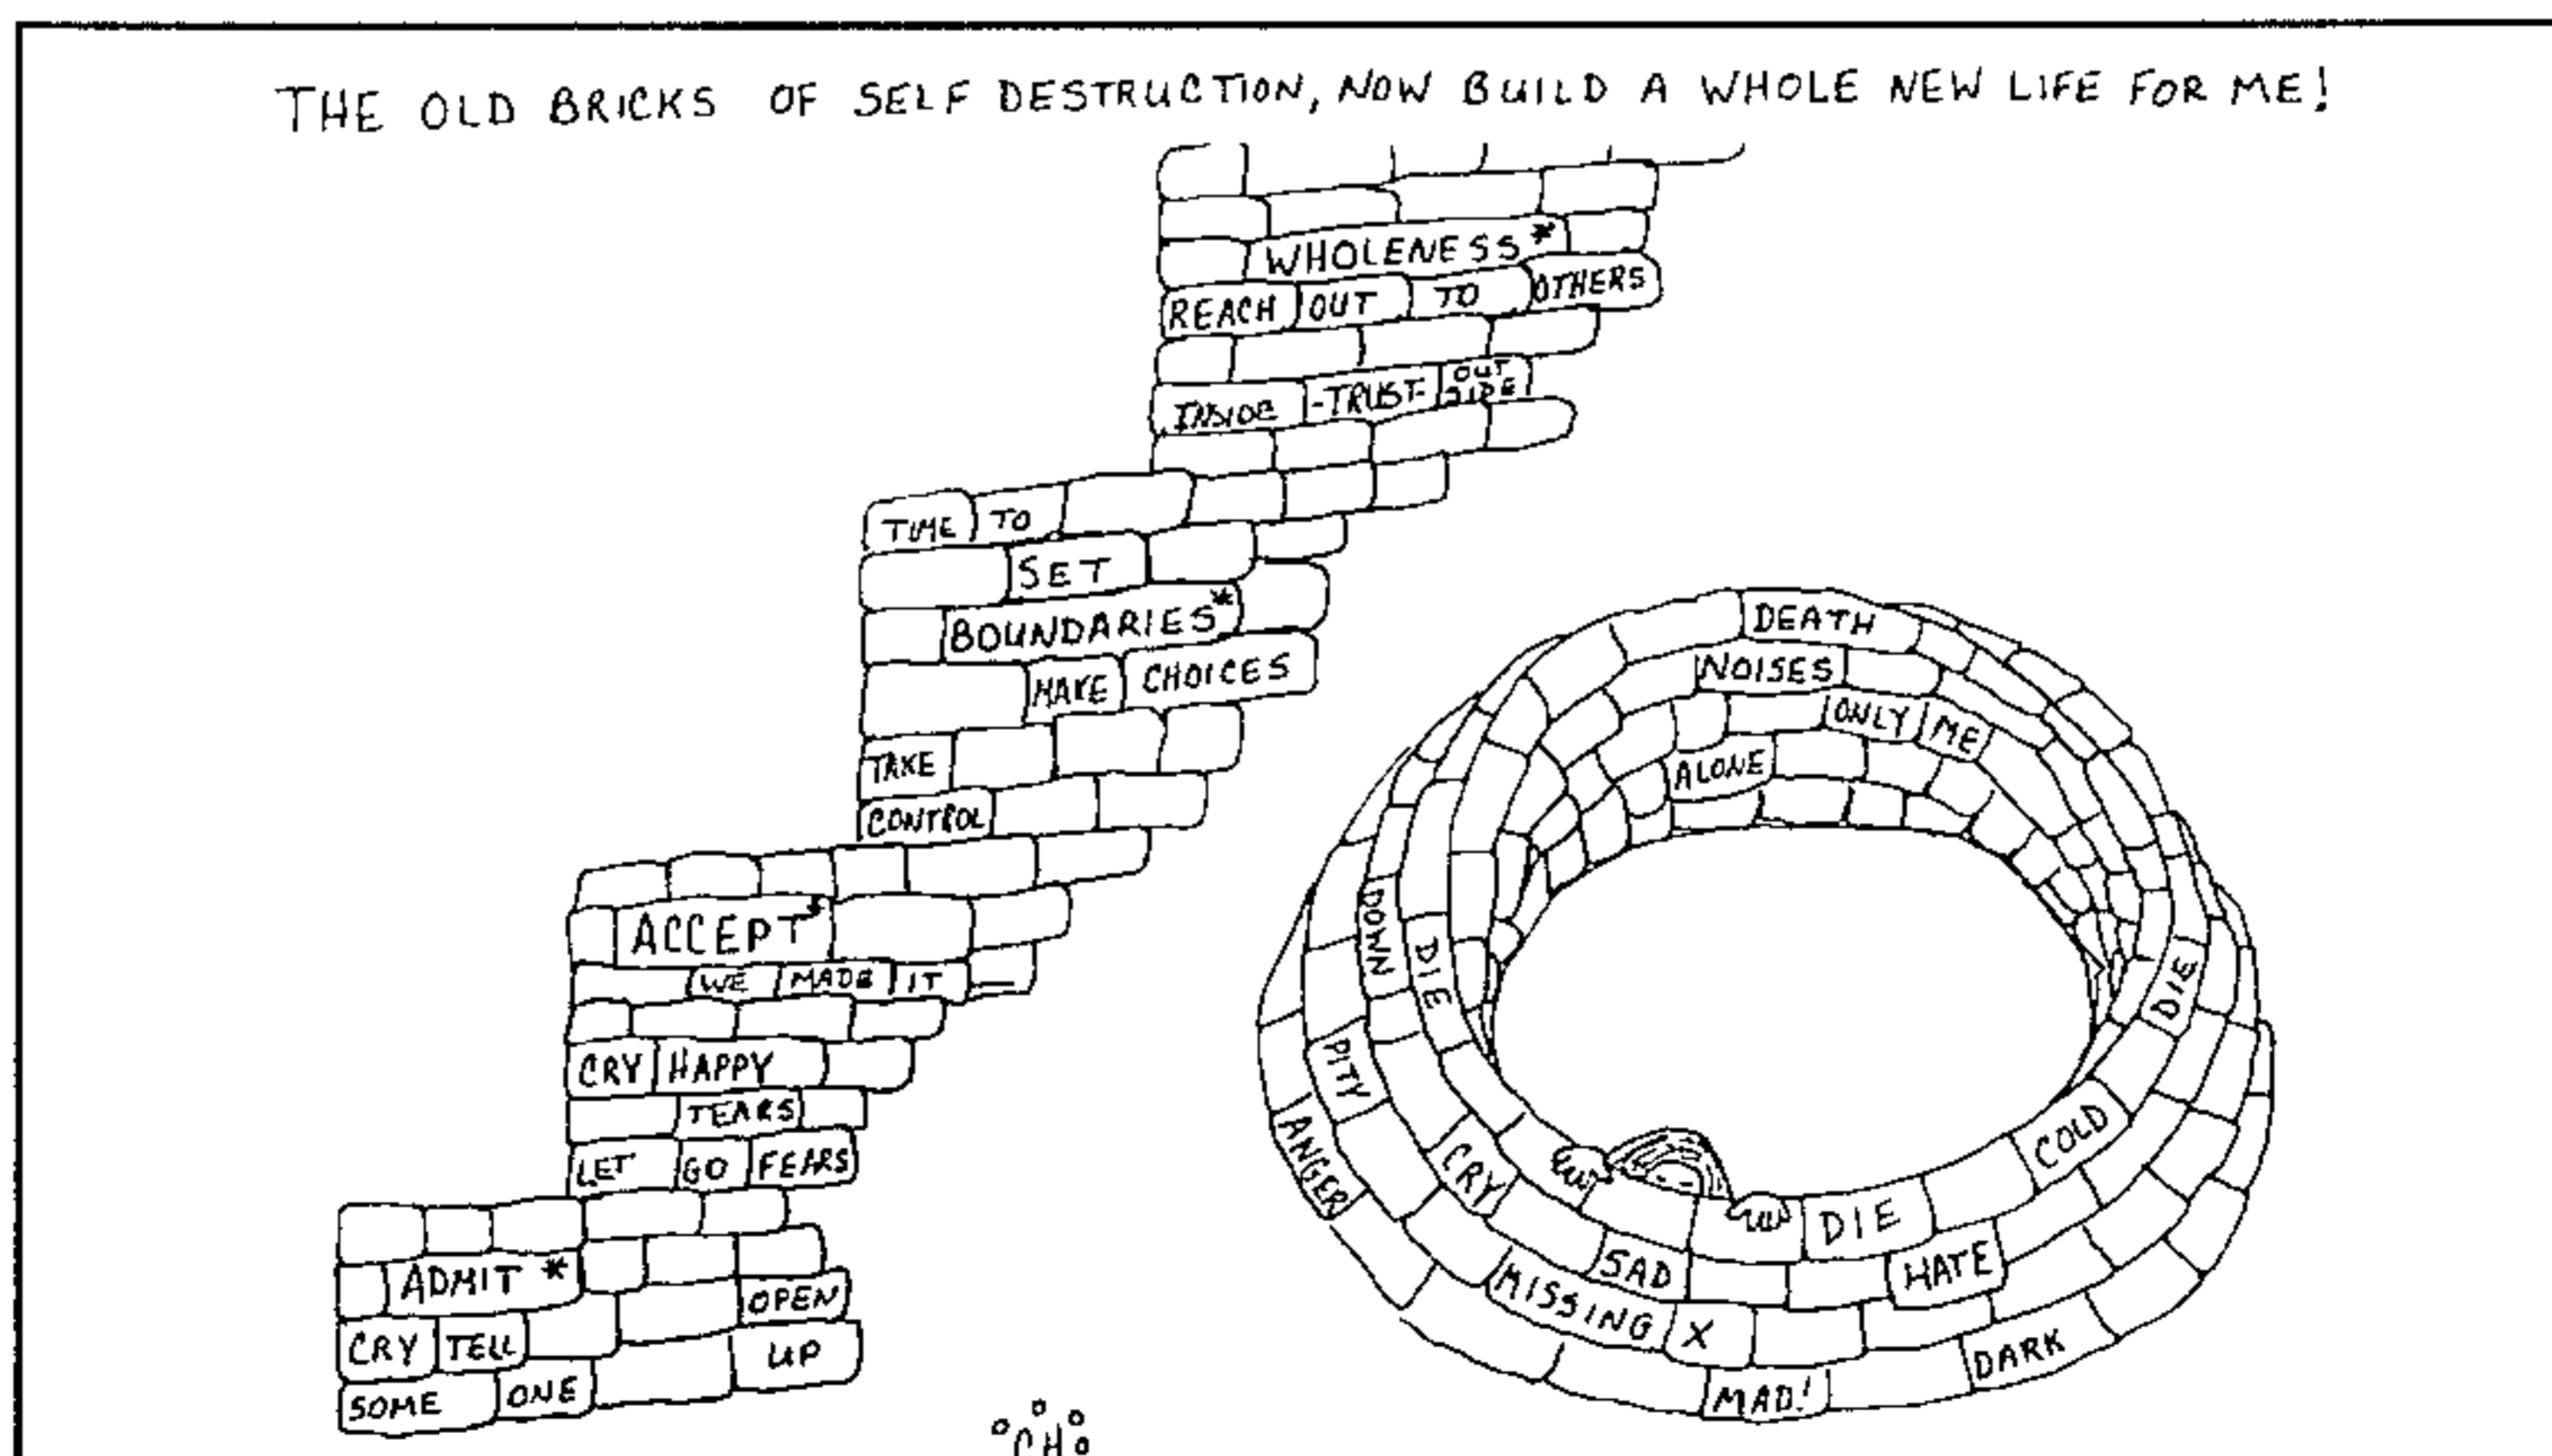 THE OLD BRICKS OF SELF DESTRUCTION, NOW BUILD A WHOLE NEW LIFE FOR ME!
WHOLENESS*
REACH OUT TO OTHERS
INSIDE -TRUST- OUT SIDE
TIME TO
SET
BOUNDARIES*
MAKE CHOICES
TAKE
CONTROL
ACCEPT*
WE MADE IT
CRY HAPPY
TEARS
LET GO FEARS
ADMIT *
CRY TELL OPEN
SOME ONE UP
DEATH
NOISES
ONLY ME
ALONE
DOWN
DIE
DIE
PITY
ANGER
CRY
COLD
DIE
SAD
HATE
MISSING X
DARK
MAD!
CH